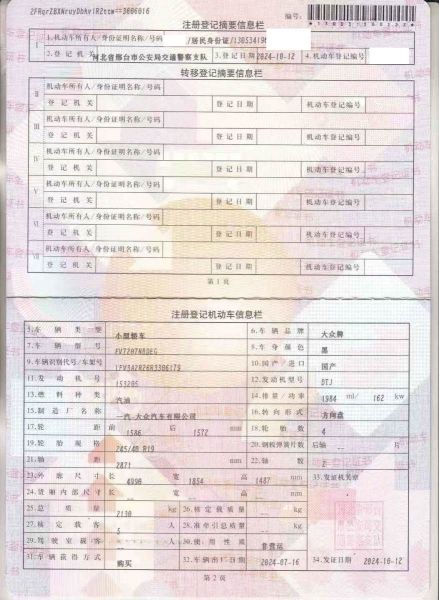 2FRqrZBXNruyDbkvlR2tcw==3606016
编号:
注册登记摘要信息栏
I 1.机动车所有人/身份证明名称/号码 /居民身份证/130534196
2.登记机关 河北省邢台市公安局交通警察支队 3.登记日期 2024-10-12 4.机动车登记编号
转移登记摘要信息栏
II 机动车所有人/身份证明名称/号码
登记机关 登记日期 机动车登记编号
III 机动车所有人/身份证明名称/号码
登记机关 登记日期 机动车登记编号
IV 机动车所有人/身份证明名称/号码
登记机关 登记日期 机动车登记编号
V 机动车所有人/身份证明名称/号码
登记机关 登记日期 机动车登记编号
VI 机动车所有人/身份证明名称/号码
登记机关 登记日期 机动车登记编号
VII 机动车所有人/身份证明名称/号码
登记机关 登记日期 机动车登记编号
第1页
注册登记机动车信息栏
5.车辆类型 小型轿车 6.车辆品牌 大众牌
7.车辆型号 FV7207N8DEG 8.车身颜色 黑
9.车辆识别代号/车架号 10.国产/进口 国产
11.发动机号 153205 12.发动机型号 DTJ
13.燃料种类 汽油 14.排量/功率 1984 ml/ 162 kw
15.制造厂名称 一汽-大众汽车有限公司 16.转向形式 方向盘
17.轮距 前 1586 后 1572 mm 18.轮胎数 4
19.轮胎规格 245/40 R19 20.钢板弹簧片数 后轴 -- 片
21.轴距 2871 mm 22.轴数 2
23.外廓尺寸 长 4990 宽 1854 高 1487 mm 33.发证机关章
24.货厢内部尺寸 长 -- 宽 -- 高 -- mm
25.总质量 2130 kg 26.核定载质量 -- kg
27.核定载客 5 人 28.准牵引总质量 -- kg
29.驾驶室载客 -- 人 30.使用性质 非营运
31.车辆获得方式 购买 32.车辆出厂日期 2024-07-16 34.发证日期 2024-10-12
第2页